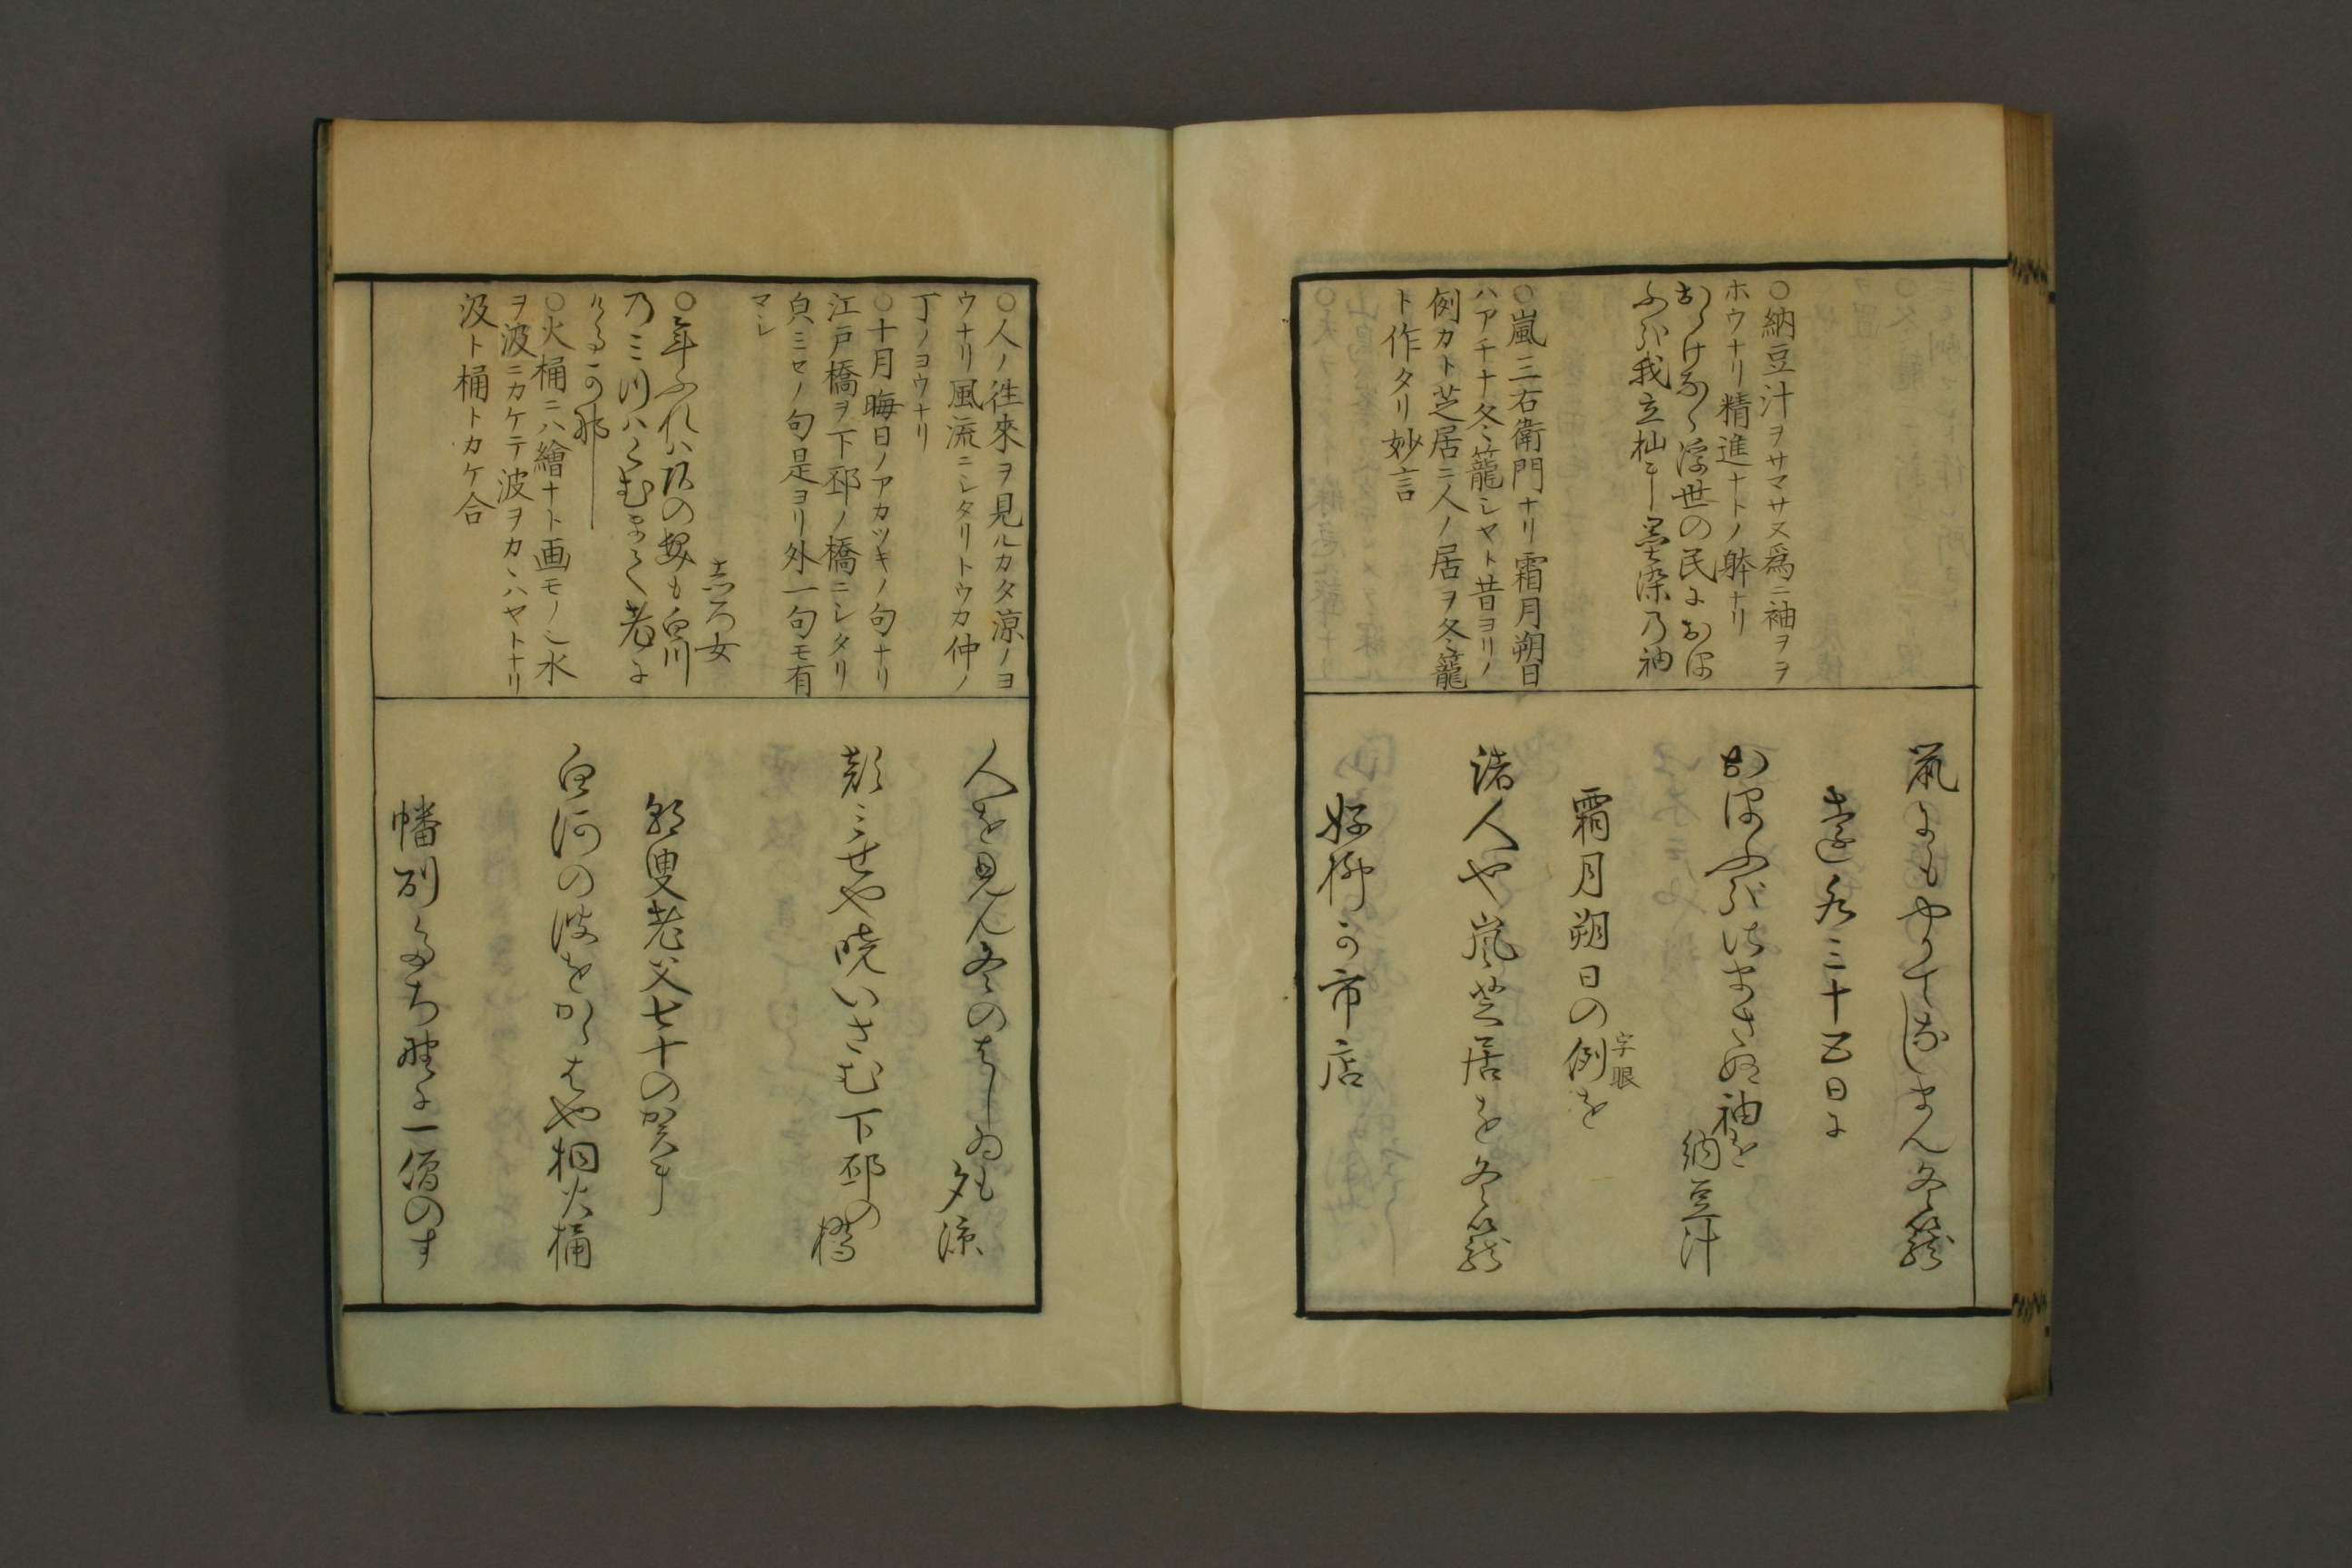 ○納豆汁ヲサマサス爲ニ袖ヲヲ
ホウナリ精進ナトノ躰ナリ
おほけなく浮世の民におほ
ふ哉我立杣に墨染乃袖
○嵐三右衛門ナリ霜月朔日
ハアチナ冬籠シヤト昔ヨリノ
例カト芝居ニ人ノ居ヲ冬籠
ト作タリ妙言
鼠にもやかてなしまん冬籠
達磨三十五日に
おほふ哉はまさぬ袖を納豆汁
霜月朔日の例を
字眼
諸人や嵐芝居を冬籠
好柳か市店
○人ノ徃來ヲ見ルカタ涼ノヨ
ウナリ風流ニシタリトウカ仲ノ
丁ノヨウナリ
○十月晦日ノアカツキノ句ナリ
江戸橋ヲ下邳ノ橋ニシタリ
皃ミセノ句是ヨリ外一句モ有
マシ
○年ふれは我の髪も白川
乃ミつはくむまて老に
ける可那
○火桶ニハ繪ナト画モノ也水
ヲ波ニカケテ波ヲカヽハヤトナリ
汲ト桶トカケ合
人を見ん冬のはしゐも夕涼
顔ミせや暁いさむ下邳の橋
叟老父七十の賀に
白河の波をかゝはや桐火桶
一僧のす